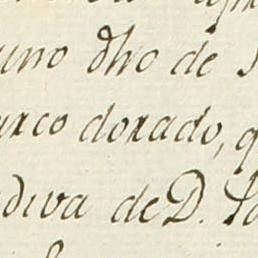 uno dho de
arco dorado, q
diva de D.